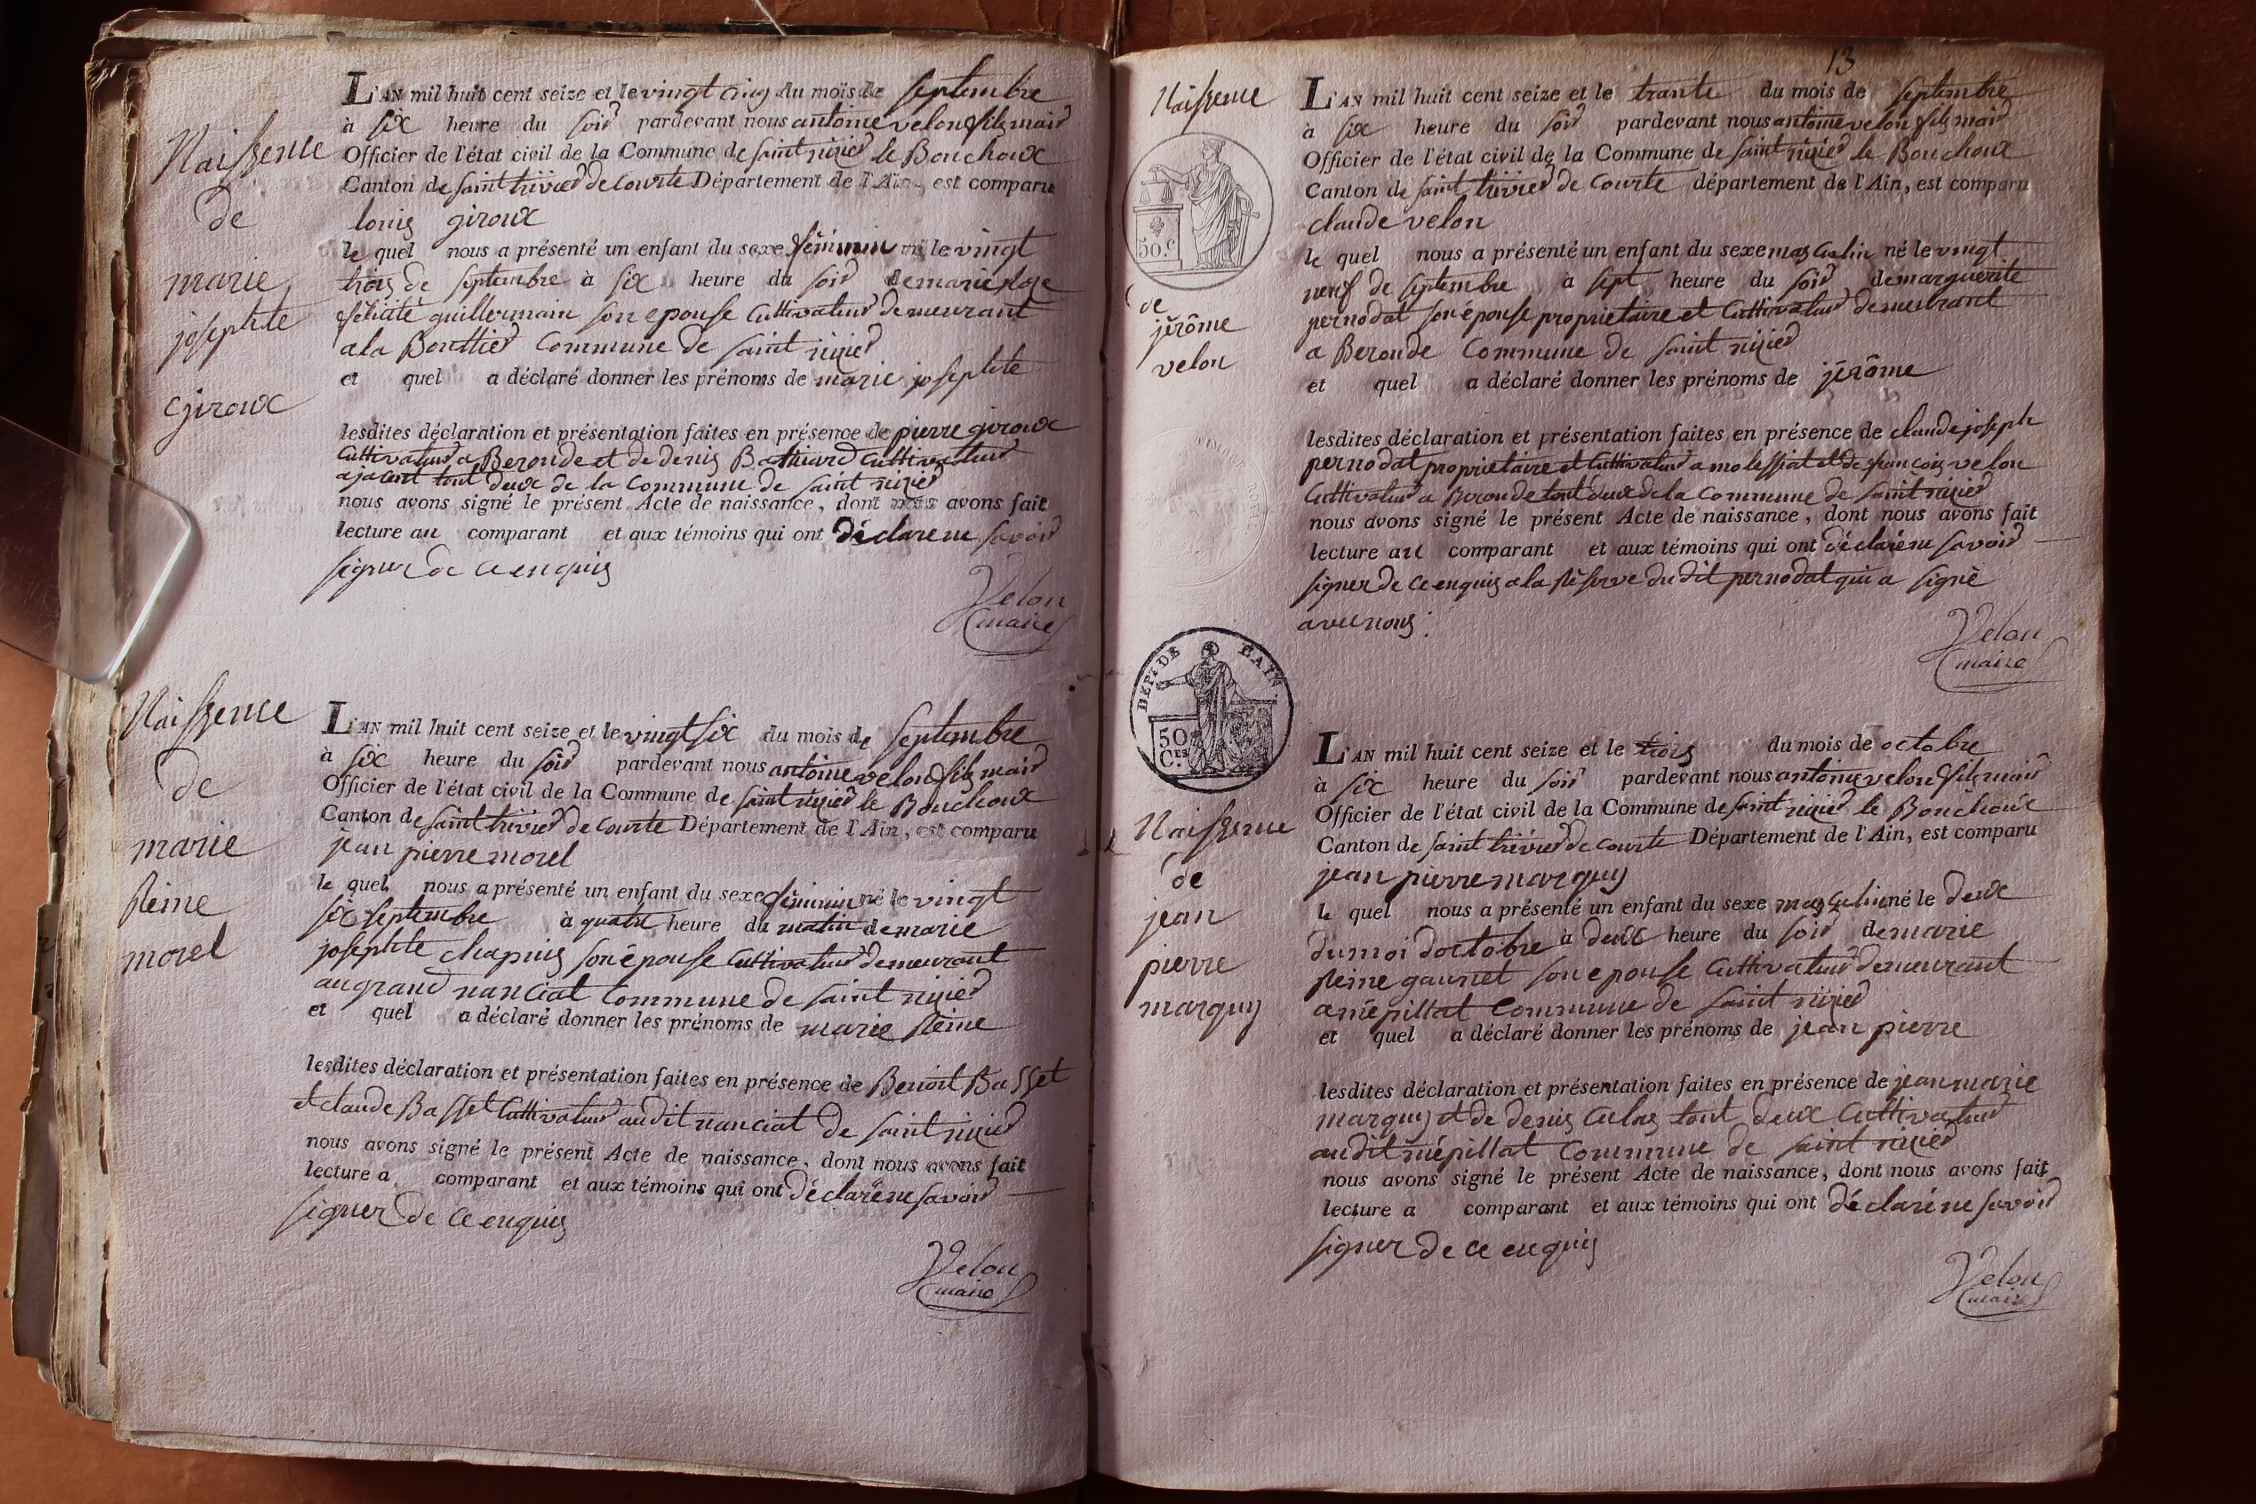 Naissence
de
marie
josephte
Giroux
L'AN mil huit cent seize et le vingt cinq du mois de septembre
à six heure du soir pardevant nous antoine velon fils mair
Officier de l'état civil de la Commune de saint nizier le Bouchoux
Canton de saint trivier de Courte Département de l'Ain, est comparu
louis giroux
le quel nous a présenté un enfant du sexe féminin né le vingt
trois de septembre à six heure du soir de marie Rose
félicité guillermain son epouse Cultivateur demeurant
a la Bouttier Commune de saint nizier
et quel a déclaré donner les prénoms de marie josephte
lesdites déclaration et présentation faites en présence de pierre giroux
Cultivateur a Beronde et de denis Cultivateur
a tout deux de la Commune de saint nizier
nous avons signé le présent Acte de naissance, dont nous avons fait
lecture au comparant et aux témoins qui ont déclaré ne savoir
signer de ce enquis
Velon
maire
Naissence
de
marie
Reine
morel
L'AN mil huit cent seize et le vingt six du mois de septembre
à six heure du soir pardevant nous antoine velon fils mair
Officier de l'état civil de la Commune de saint nizier le Bouchoux
Canton de saint trivier de Courte Département de l'Ain, est comparu
jean pierre morel
le quel nous a présenté un enfant du sexe féminin né le vingt
six septembre à quatre heure du matin de marie
josephte chapuis son épouse Cultivateur demeurant
au grand nanciat Commune de saint nizier
et quel a déclaré donner les prénoms de marie Reine
lesdites déclaration et présentation faites en présence de Benoit Basset
et claude Basset Cultivateur audit nanciat de saint nizier
nous avons signé le présent Acte de naissance, dont nous avons fait
lecture a comparant et aux témoins qui ont déclaré ne savoir
signer de ce enquis
Velon
maire
13
Naissence
50.c
de
jérôme
velon
L'AN mil huit cent seize et le trante du mois de septembre
à six heure du soir pardevant nous antoine velon fils mair
Officier de l'état civil de la Commune de saint nizier le Bouchoux
Canton de saint trivier de Courte département de l'Ain, est comparu
claude velon
le quel nous a présenté un enfant du sexe masculin né le vingt
neuf de septembre à sept heure du soir de marguerite
pernodat son épouse proprietaire et Cultivateur demeurant
a Beronde Commune de saint nizier
et quel a déclaré donner les prénoms de jérôme
lesdites déclaration et présentation faites en présence de claude joseph
pernodat proprietaire et Cultivateur a molessiat et de françois velon
Cultivateur a Beronde tout deux de la Commune de saint nizier
nous avons signé le présent Acte de naissance, dont nous avons fait
lecture au comparant et aux témoins qui ont déclaré ne savoir
signer de ce enquis a la réserve du dit pernodat qui a signé
avec nous.
Velon
maire
DÉPt. DE L'AIN.
50
C.es
Naissence
de
jean
pierre
marquis
L'AN mil huit cent seize et le trois du mois de octobre
à six heure du soir pardevant nous antoine velon fils mair
Officier de l'état civil de la Commune de saint nizier le Bouchoux
Canton de saint trivier de courte Département de l'Ain, est comparu
jean pierre marquis
le quel nous a présenté un enfant du sexe masculin né le deux
du moi doctobre à deux heure du soir de marie
Reine gaunet son epouse Cultivateur demeurant
a mépillat Commune de saint nizier
et quel a déclaré donner les prénoms de jean pierre
lesdites déclaration et présentation faites en présence de jean marie
marquis et de denis Culas tout deux Cultivateur
audit mépillat Commune de saint nizier
nous avons signé le présent Acte de naissance, dont nous avons fait
lecture a comparant et aux témoins qui ont déclaré ne savoir
signer de ce enquis
Velon
maire